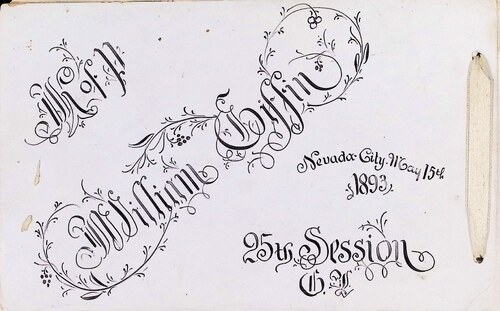 K of P.
William
Nevada City, May 15th
1893.
25th Session
G. L.